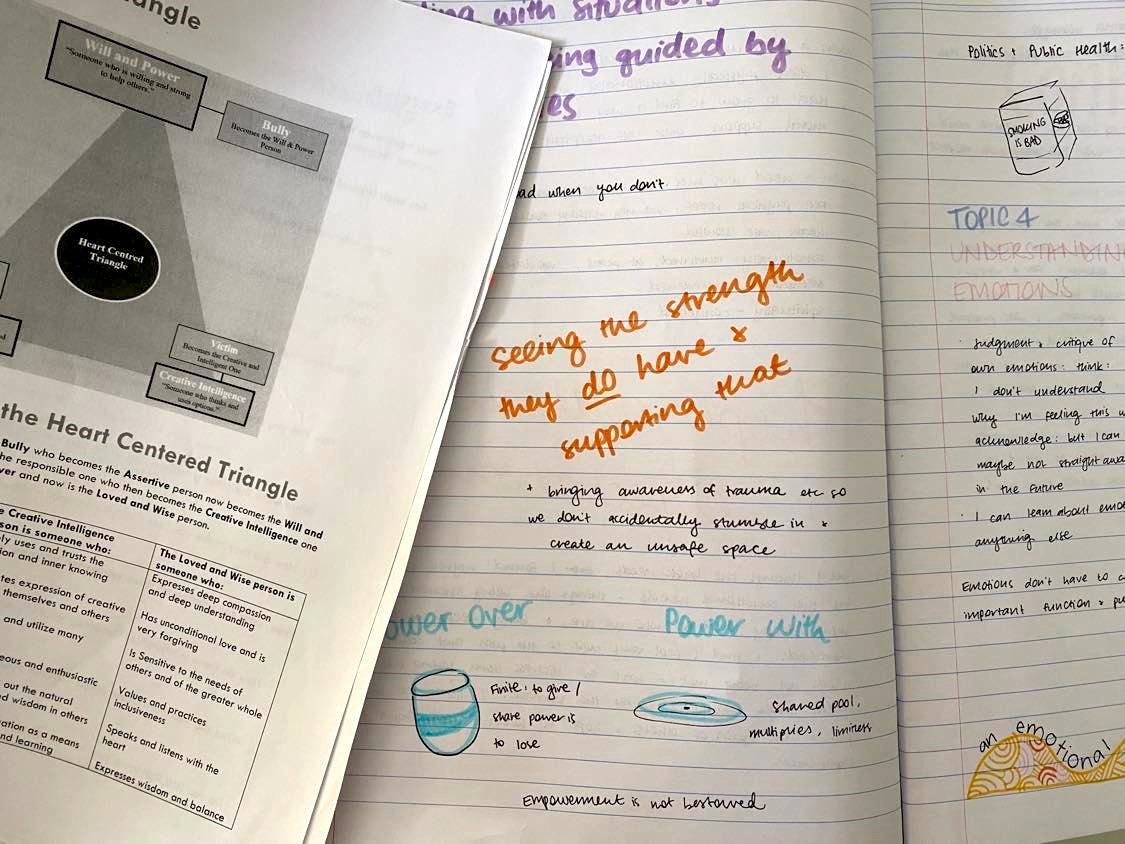 iangle
Will and Power
"Someone who is willing and strong
to help others."
Bully
Becomes the Will & Power
Person
Heart Centred
Triangle
Victim
Becomes the Creative and
Intelligent One
Creative Intelligence
"Someone who thinks and
uses options."
the Heart Centered Triangle
Bully who becomes the Assertive person now becomes the Will and
the responsible one who then becomes the Creative Intelligence one
ver and now is the Loved and Wise person.
e Creative Intelligence
rson is someone who:
ly uses and trusts the
ion and inner knowing
tes expression of creative
themselves and others
and utilize many
eous and enthusiastic
out the natural
d wisdom in others
ation as a means
nd learning
The Loved and Wise person is
someone who:
Expresses deep compassion
and deep understanding
Has unconditional love and is
very forgiving
Is Sensitive to the needs of
others and of the greater whole
Values and practices
inclusiveness
Speaks and listens with the
heart
Expresses wisdom and balance
ling with situations
ing guided by
es
ad when you don't
seeing the strength
they do have &
supporting that
+ bringing awareness of trauma etc so
we don't accidentally stumble in &
create an unsafe space
ower over
Finite: to give /
share power is
to lose
Power with
shared pool,
multiplies, limitless
Empowerment is not bestowed
Politics + Public Health:
SMOKING
IS BAD
TOPIC 4
UNDERSTANDING
EMOTIONS
· Judgment & critique of
own emotions: think:
I don't understand
why I'm feeling this w
acknowledge: but I can
maybe not straight awa
in the future
· I can learn about emo
anything else
Emotions don't have to c
important function & pu
an emotional